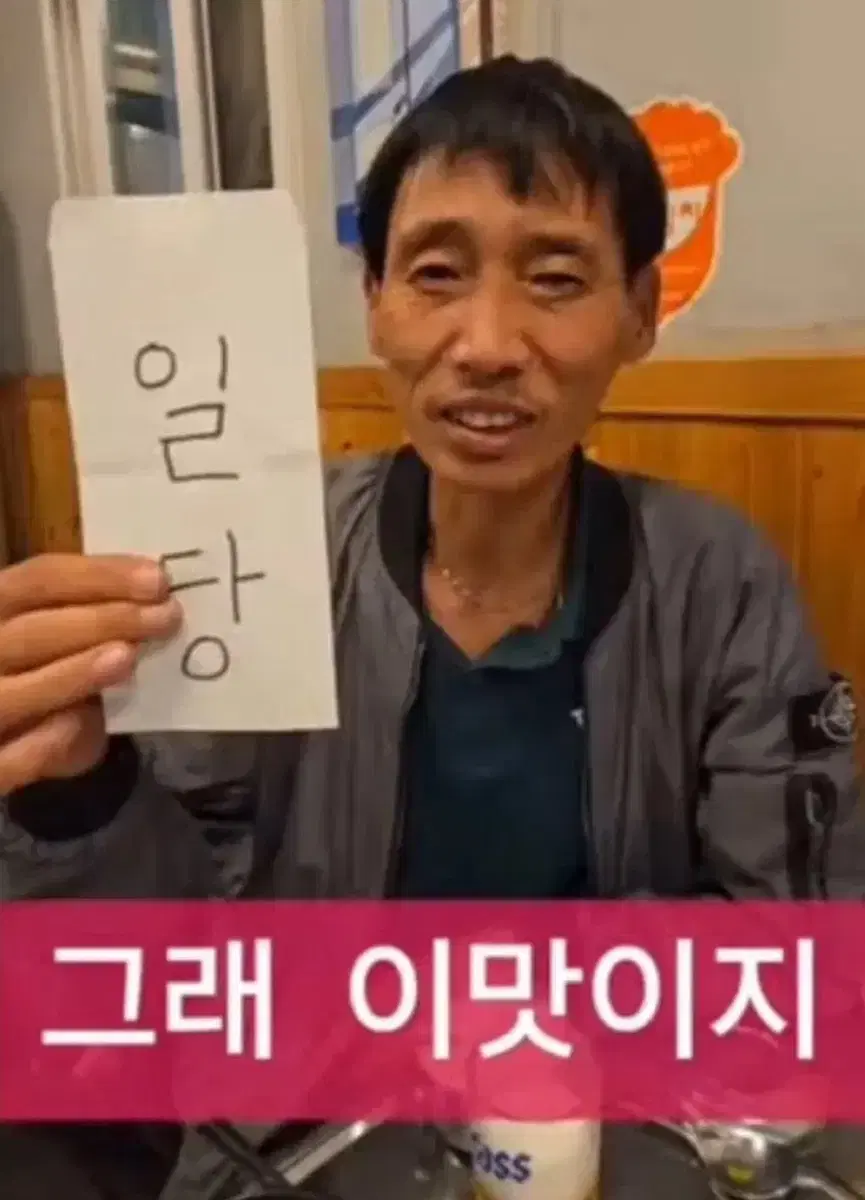 일당
그래 이맛이지
oss